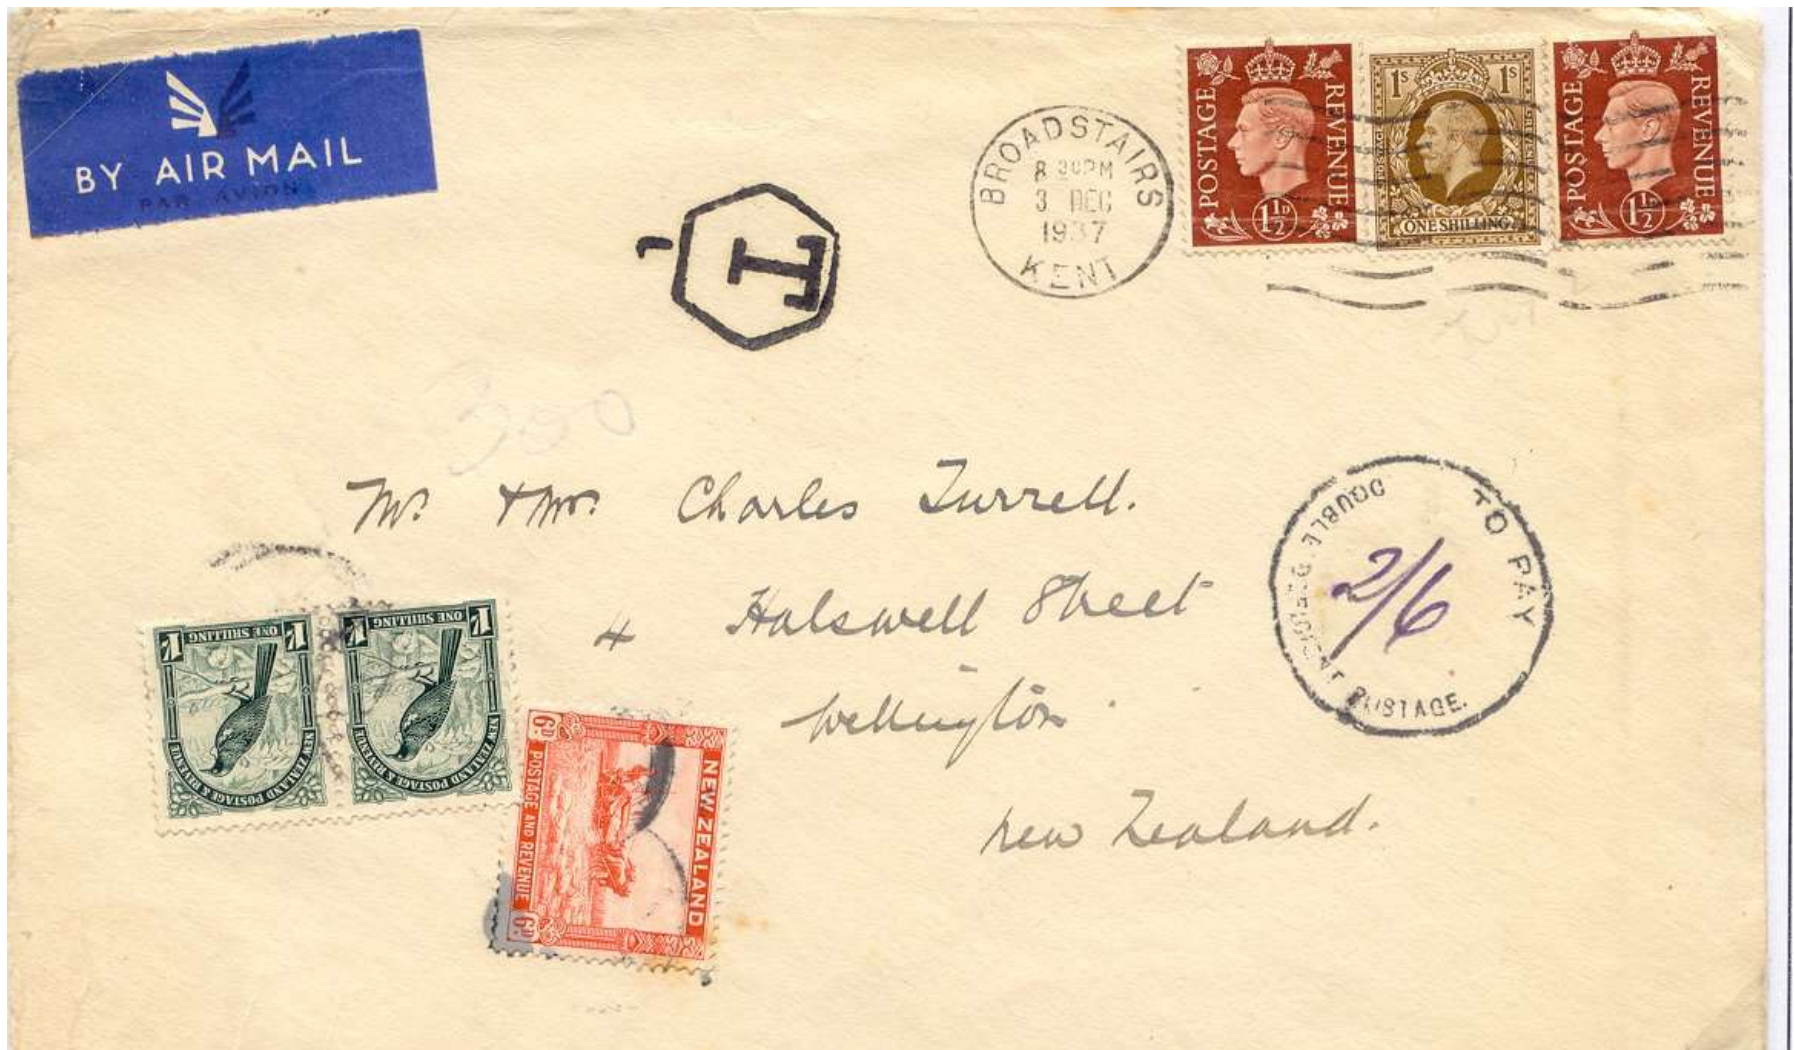 BY AIR MAIL
PAR AVION
T
BROADSTAIRS
8 30 PM
3 DEC
1937
KENT
POSTAGE REVENUE
1½D
1S 1S
POSTAGE REVENUE
ONE SHILLING
POSTAGE REVENUE
1½D
300
Mr. & Mrs. Charles Turrell.
4 Halswell Street
Wellington
New Zealand.
TO PAY
2/6
DOUBLE DEFICIENT POSTAGE.
1/- ONE SHILLING 1/-
NEW ZEALAND POSTAGE & REVENUE
1/- ONE SHILLING 1/-
NEW ZEALAND POSTAGE & REVENUE
NEW ZEALAND
6D POSTAGE AND REVENUE 6D